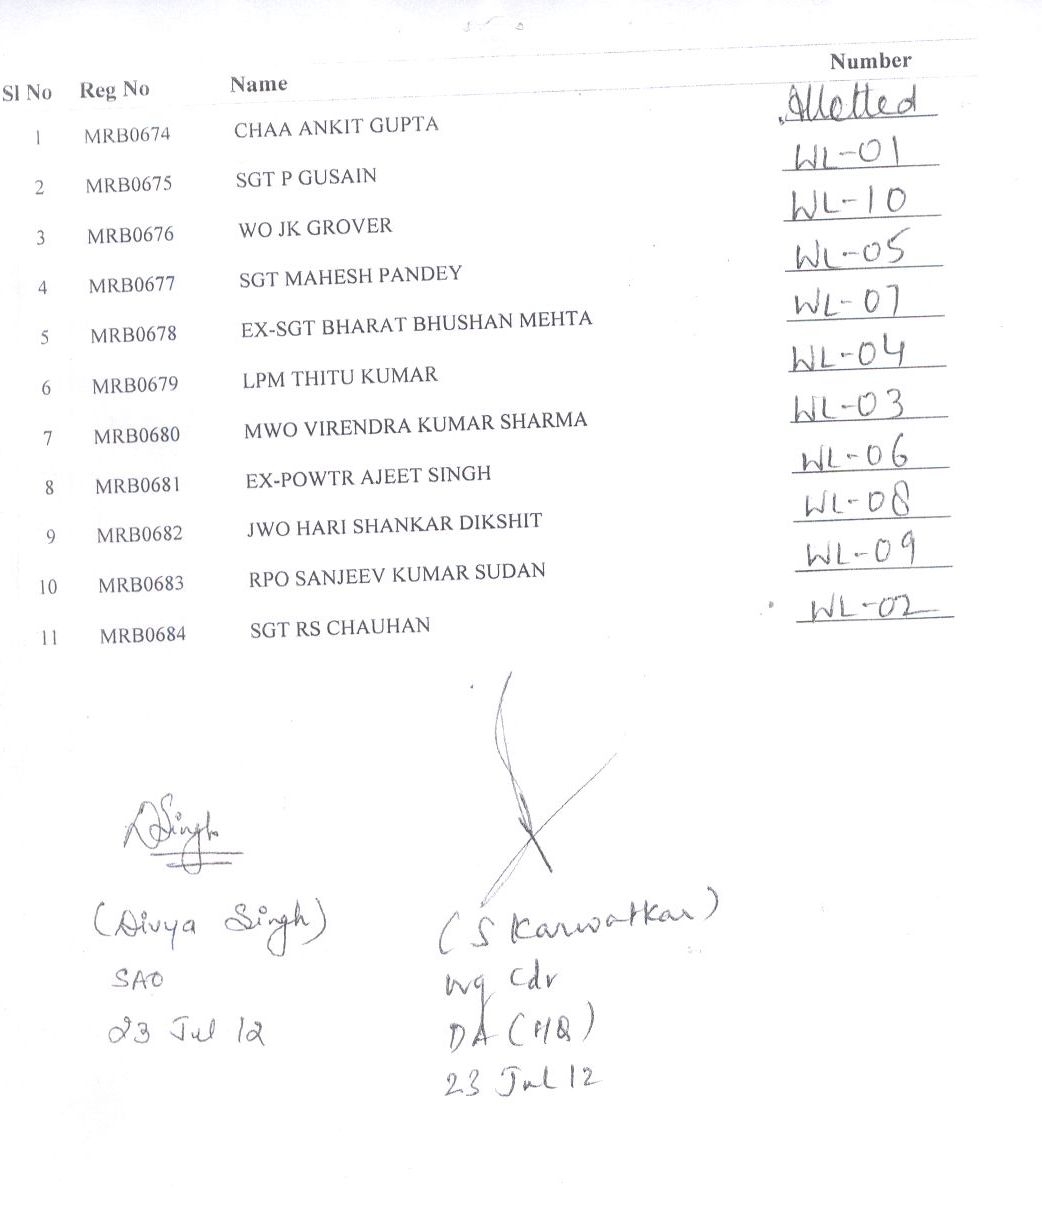 Sl No Reg No Name Number
1 MRB0674 CHAA ANKIT GUPTA Allotted
2 MRB0675 SGT P GUSAIN WL-01
3 MRB0676 WO JK GROVER WL-10
4 MRB0677 SGT MAHESH PANDEY WL-05
5 MRB0678 EX-SGT BHARAT BHUSHAN MEHTA WL-07
6 MRB0679 LPM THITU KUMAR WL-04
7 MRB0680 MWO VIRENDRA KUMAR SHARMA WL-03
8 MRB0681 EX-POWTR AJEET SINGH WL-06
9 MRB0682 JWO HARI SHANKAR DIKSHIT WL-08
10 MRB0683 RPO SANJEEV KUMAR SUDAN WL-09
11 MRB0684 SGT RS CHAUHAN WL-02
DSingh
(Divya Singh) (S Karwatkar)
SAO Wg Cdr
23 Jul 12 DA (HQ)
23 Jul 12